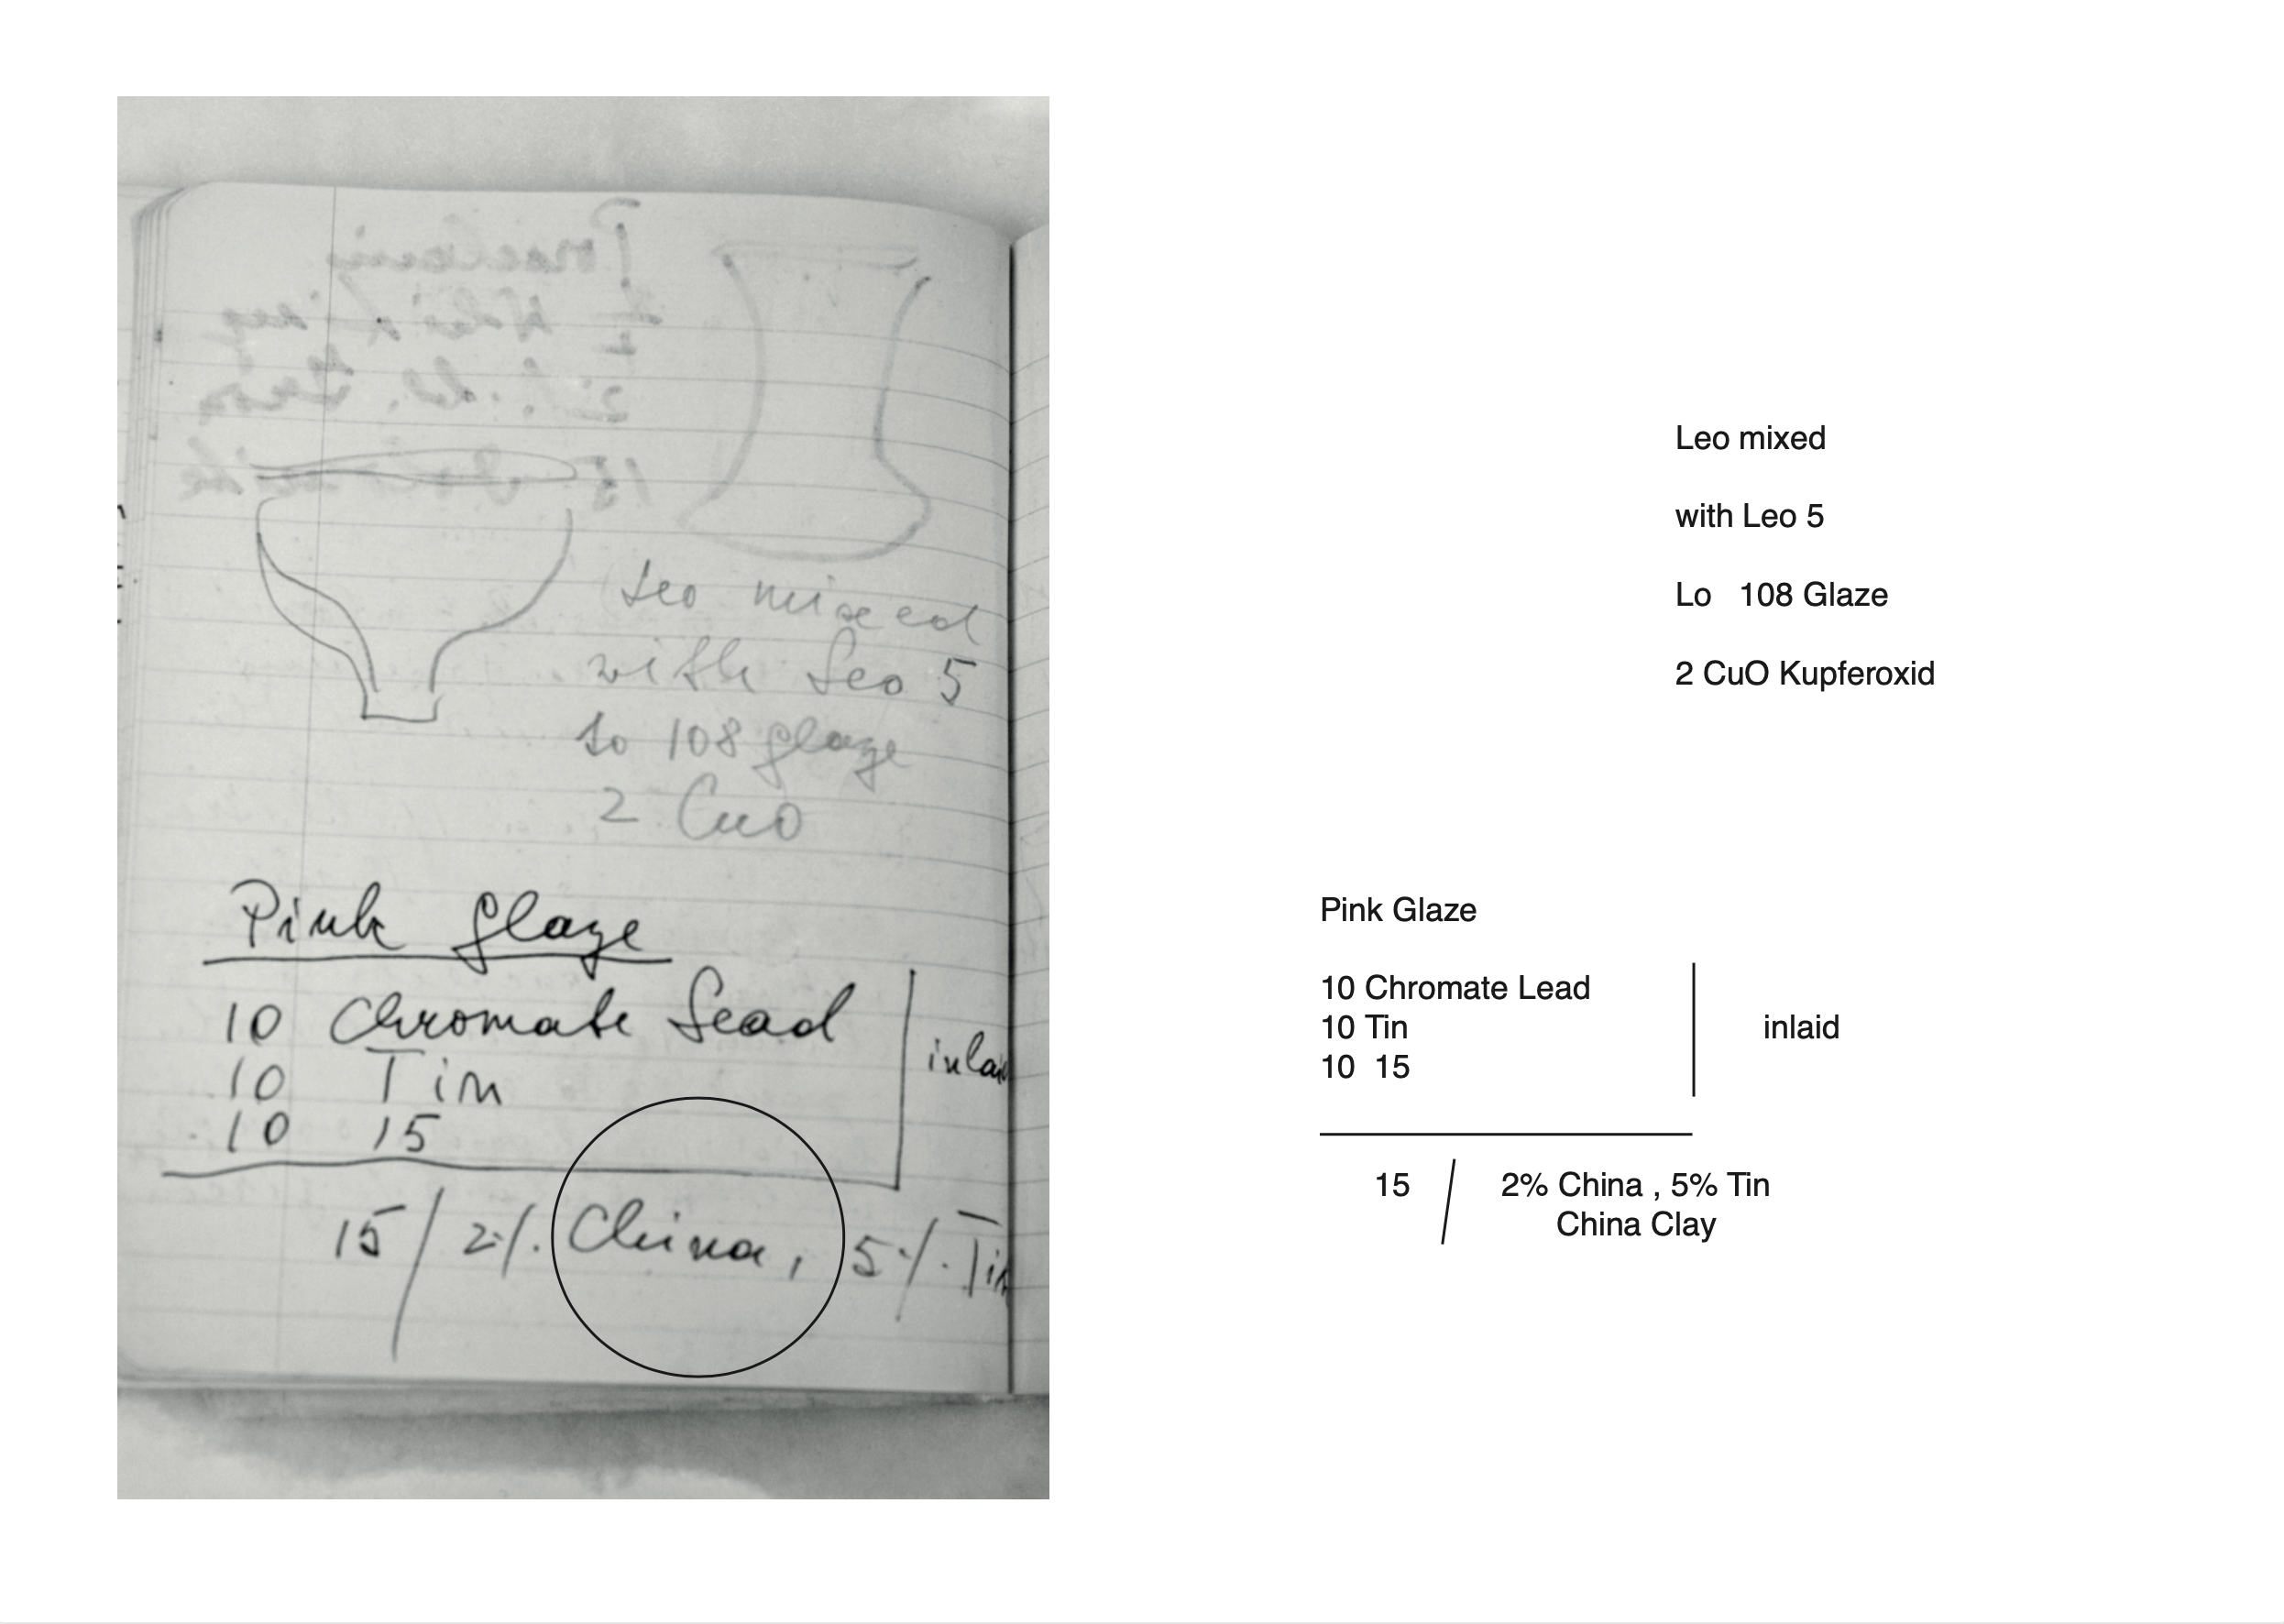 Leo mixed
with Leo 5
to 108 glaze
2 CuO
Pink glaze
10 Chromate Lead
10 Tin
10 15
inlai
15 / 2% China, 5% Tin
Leo mixed
with Leo 5
Lo 108 Glaze
2 CuO Kupferoxid
Pink Glaze
10 Chromate Lead
10 Tin
10 15
inlaid
15 / 2% China , 5% Tin
China Clay